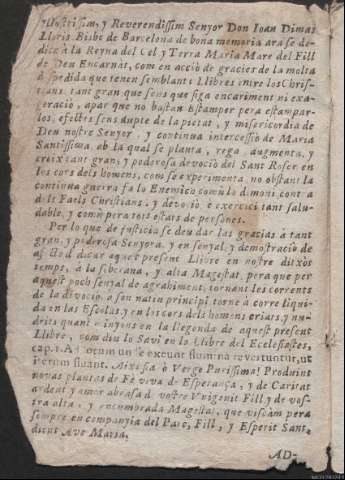 Illustrissim, y Reverendissim Senyor Don Ioan Dimas
Lloris Bisbe de Barcelona de bona memoria ara se de-
dica à la Reyna del Cel y Terra Maria Mare del Fill
de Deu Encarnat, com en acciò de gracies de la molta
espedida que tenen semblants Llibres entre los Chris-
tians tant gran que sens que siga encariment ni exa-
geraciò, apar que no bastan Estampers pera estampar-
los, efectes sens dupte de la pietat, y misericordia de
Deu nostre Senyor, y continua intercessiò de Maria
Santissima ab la qual se planta, rega, augmenta, y
creix tant gran, y poderosa devociò del Sant Roser en
los cors dels homens, com se experimenta no obstant la
continua guerra fa lo Enemich comù lo dimoni contra
dels Faels Christians, y devociò, e exercici tant salu-
dable, y comù pera tots estats de persones.
Per lo que de justicia se deu dar las gracias à tant
gran, y poderosa Senyora, y en senyal, y demostraciò de
aço dicar aquest present Llibre en nostre ditxòs
temps, à la soberana, y alta Magestat, pera que per
aquest poch senyal de agrahiment, tornant les corrents
de la devociò, à son natiu principi torne à corre lliqui-
da en las Escolas y en los cors dels homens criats, y nu-
drits quant minyons en la llegenda de aquest present
Llibre, com diu lo Savi en lo Llibre del Ecclesiastes,
cap. 1. Ad locum unde exeunt flumina revertuntur, ut
iterum fluant. Aixi sia ò Verge Purissima! Produint
novas plantas de Fè viva de Esperança, y de Caritat
ardent y amor abrasa d vostre Vnigenit Fill y de vos-
tra alta, y encumbrada Magestat, que viscàm pera
sempre en companyia del Pare, Fill, y Esperit Sant,
dient Ave Maria.
AD-